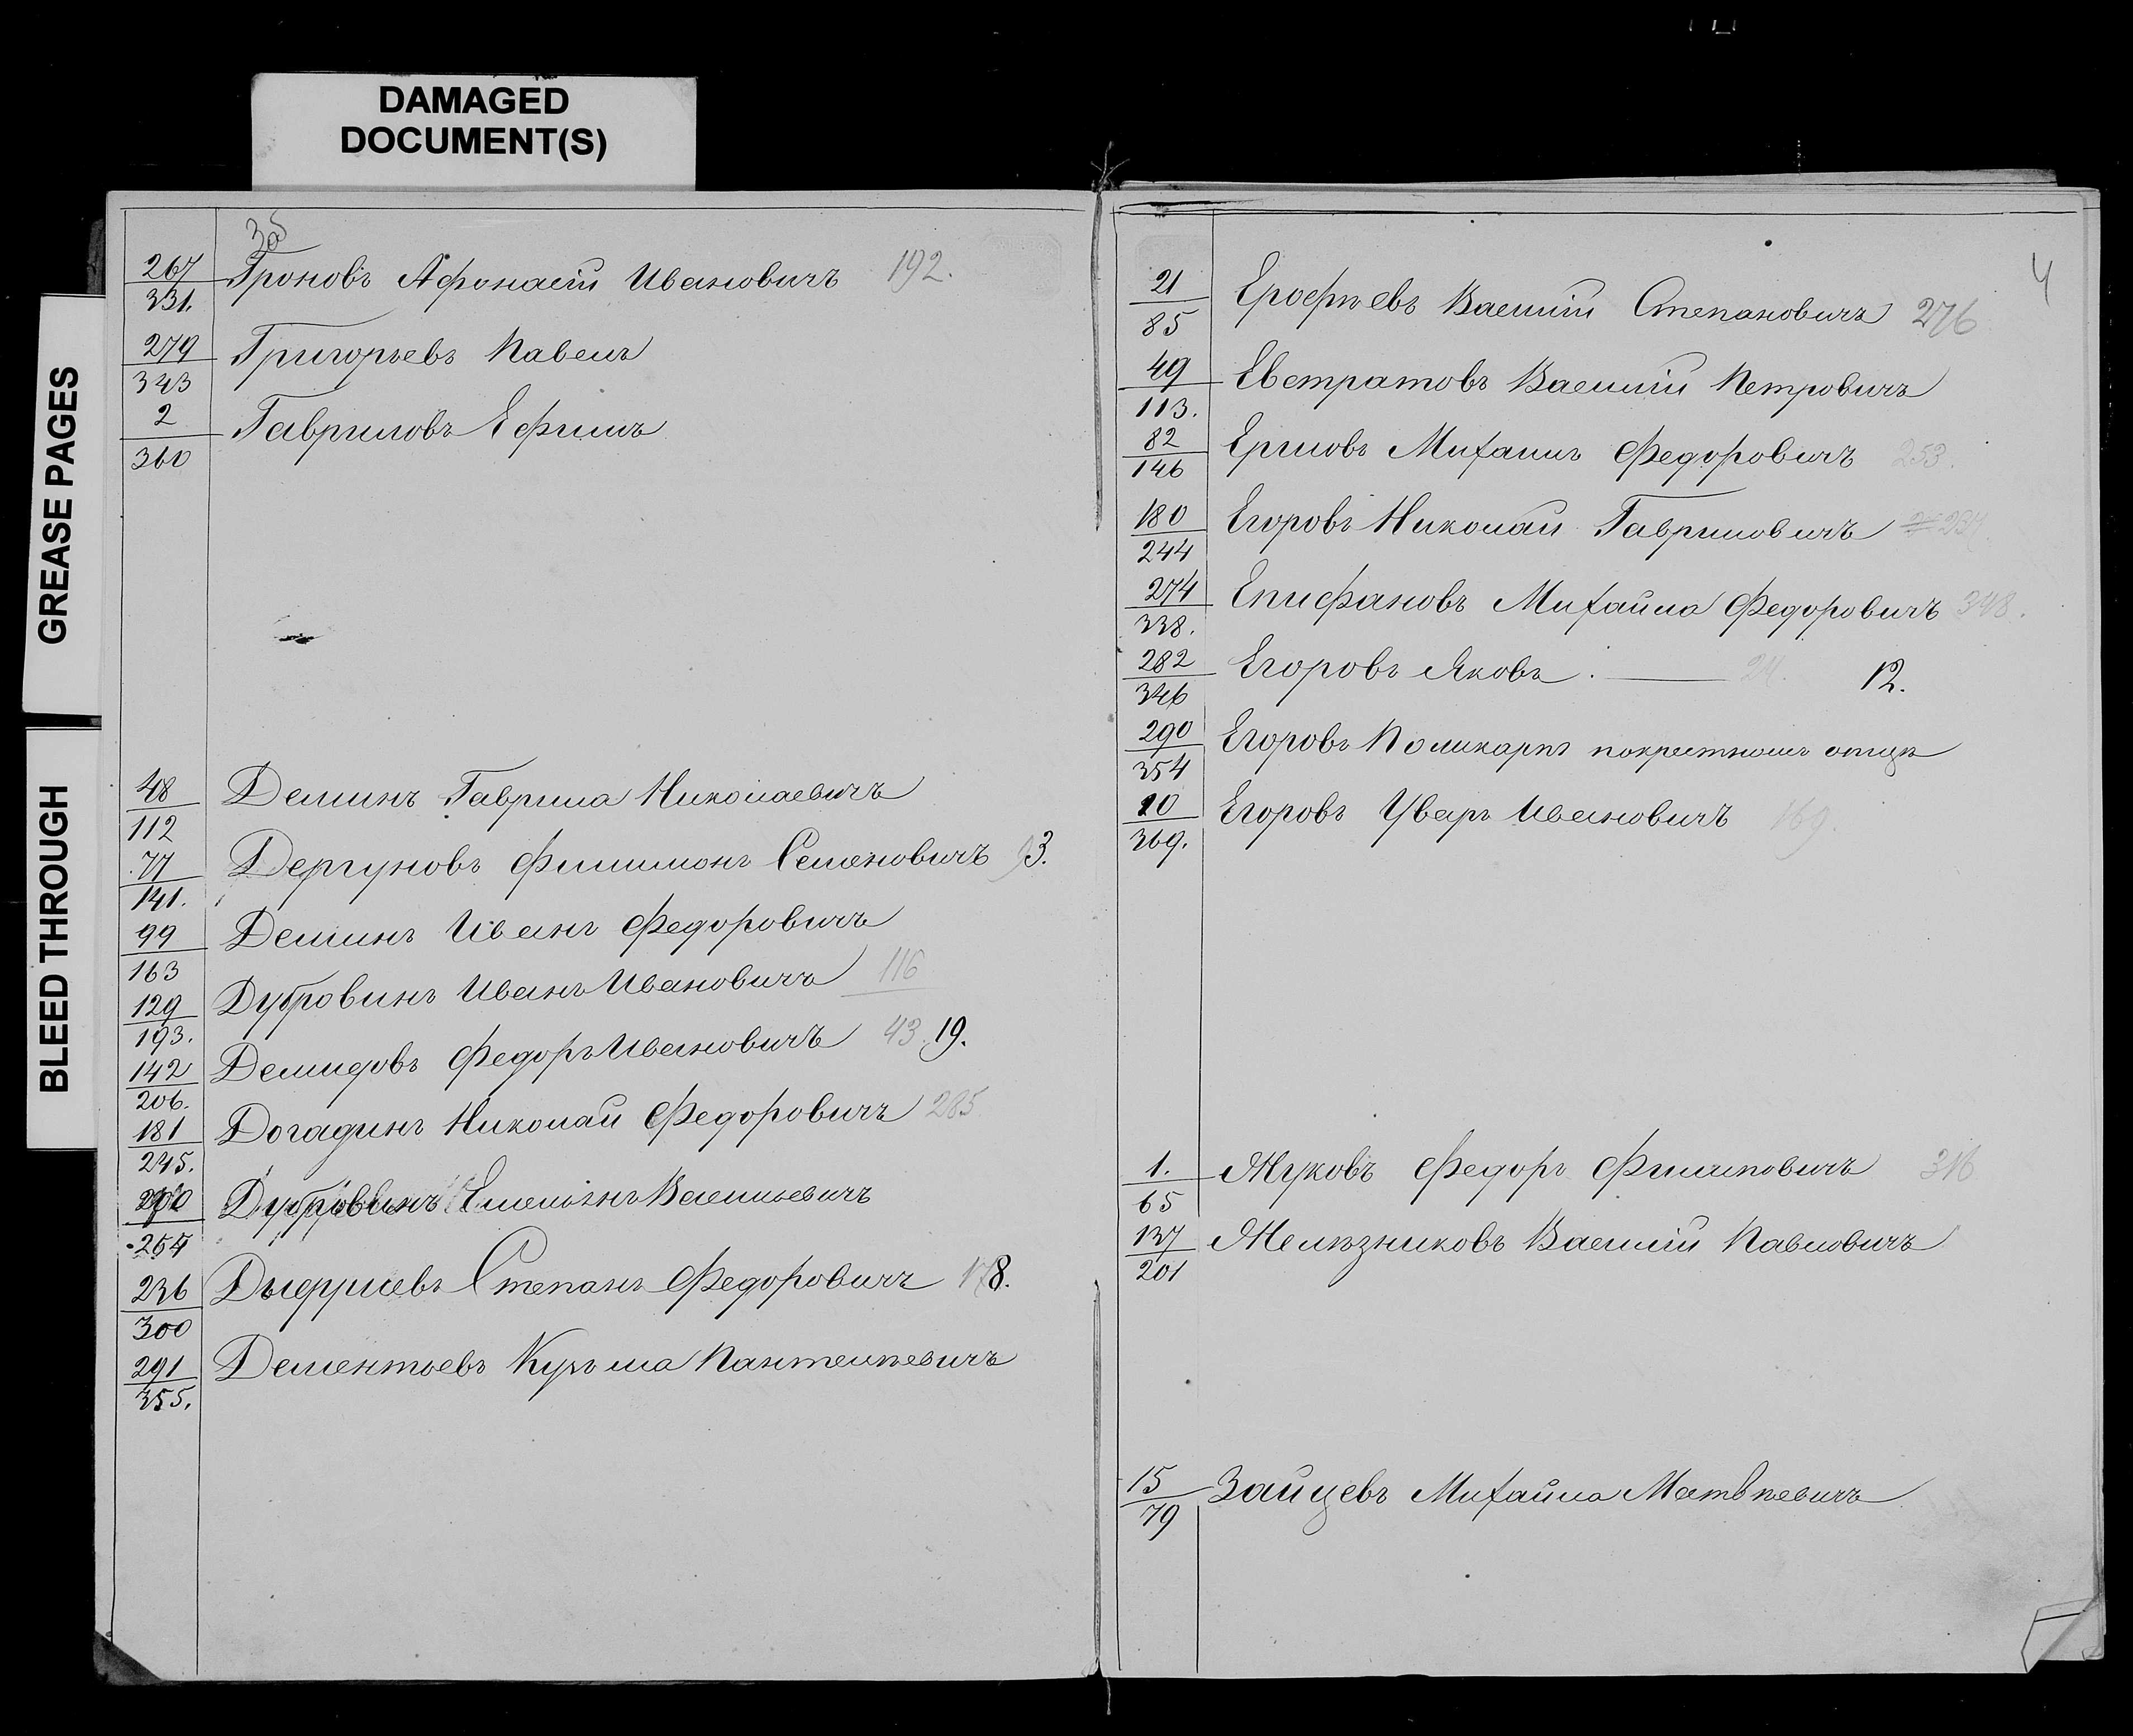 DAMAGED
DOCUMENT(S)
GREASE PAGES
BLEED THROUGH
3об
267/331. Гроновъ Афонасій Ивановичъ 192.
279/343 Григорьевъ Павелъ
2/360 Гавриловъ Ефимъ
48/112 Деминъ Гаврила Николаевичъ
77/141. Дергуновъ Филимонъ Семеновичъ 3.
99/163 Деминъ Иванъ Федоровичъ
129/193. Дубровинъ Иванъ Ивановичъ 116
142/206. Демидовъ Федоръ Ивановичъ 43. 19.
181/245. Догадинъ Николай Федоровичъ 285
264 Дубровинъ Емельянъ Васильевичъ
236/300 Степанъ Федоровичъ 178.
291/355. Дементьевъ Кузьма Пантелѣевичъ
4
21/85 Ерофѣевъ Василій Степановичъ 276
49/113. Евстратовъ Василій Петровичъ
82/146 Ермиловъ Михаилъ Федоровичъ 253.
180/244 Егоровъ Николай Гавриловичъ 234
274/338. Епифановъ Михайла Федоровичъ 348.
282/346 Егоровъ Яковъ. 24. 12.
290/354 Егоровъ Поликарпъ покрестному отцѣ
10/369. Егоровъ Уваръ Ивановичъ 169.
1./65 Жуковъ Федоръ Филиповичъ 316
137/201 Желѣзниковъ Василій Павловичъ
15/79 Зайцевъ Михайла Матвѣевичъ